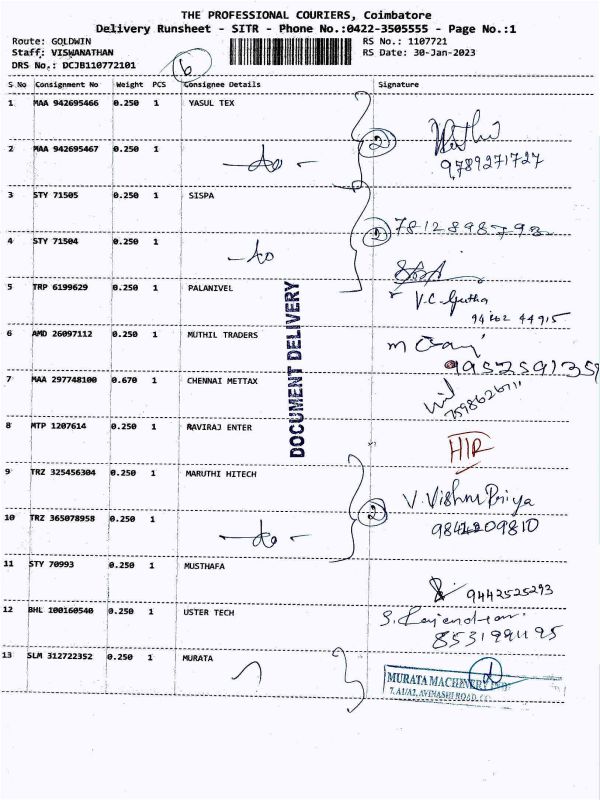 THE PROFESSIONAL COURIERS, Coimbatore
Delivery Runsheet - SITR - Phone No.:0422-3505555 - Page No.:1
Route: GOLDWIN RS No.: 1107721
Staff: VISWANATHAN RS Date: 30-Jan-2023
DRS No.: DCJB110772101
6
S No Consignment No Weight PCS Consignee Details Signature
1 MAA 942695466 0.250 1 YASUL TEX
2 MAA 942695467 0.250 1 - do - 2
9789271727
3 STY 71505 0.250 1 SISPA
2 7812898793
4 STY 71504 0.250 1 - do
5 TRP 6199629 0.250 1 PALANIVEL V.C.
6 AMD 26097112 0.250 1 MUTHIL TRADERS
7 MAA 297748100 0.670 1 CHENNAI METTAX
8 MTP 1207614 0.250 1 RAVIRAJ ENTER
DOCUMENT DELIVERY
9 TRZ 325456304 0.250 1 MARUTHI HITECH V. Vishnu Priya
10 TRZ 365078958 0.250 1 - do - 2
11 STY 70993 0.250 1 MUSTHAFA 9442525293
12 BHL 100160540 0.250 1 USTER TECH S. Rajendran
13 SLM 312722352 0.250 1 MURATA
MURATA MACHINERY
AVINASHI ROAD